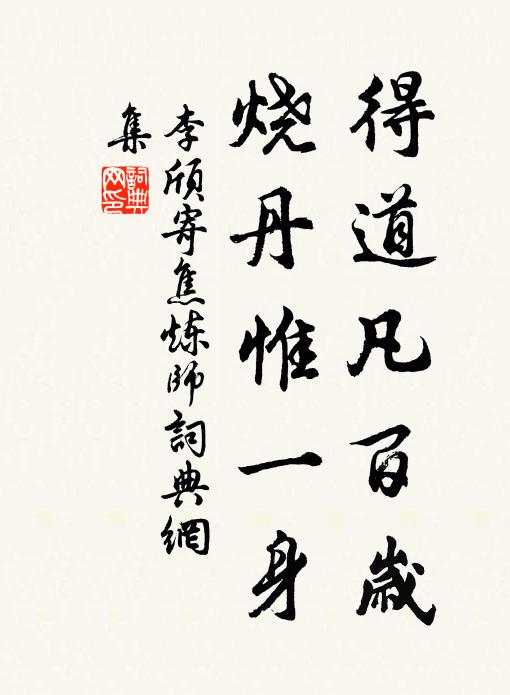 得道凡百歲
烧丹惟一身
李頎寄焦炼師詞典網
集
詞典
网印